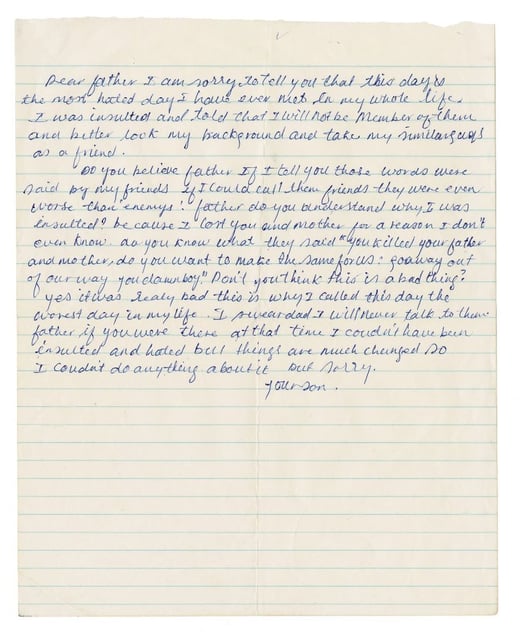 Dear father I am sorry to tell you that this day is
the most hated day I have ever met in my whole life.
I was insulted and told that I will not be member of them
and better look my background and take my similar guys
as a friend.
Do you believe father If I tell you those words were
said by my friends If I could call them friends they were even
worse than enemys! father do you understand why I was
insulted? be cause I lost you and mother for a reason I don't
even know. do you know what they said "you killed your father
and mother, do you want to make the same for us: go away out
of our way you damn boy." Don't you think this is a bad thing?
yes it was realy bad this is why I called this day the
worest day in my life. I swear dad I will never talk to them.
father if you were there at that time I coudn't have been
insulted and hated but things are much changed so
I coudn't do anything about it but sorry.
your son.